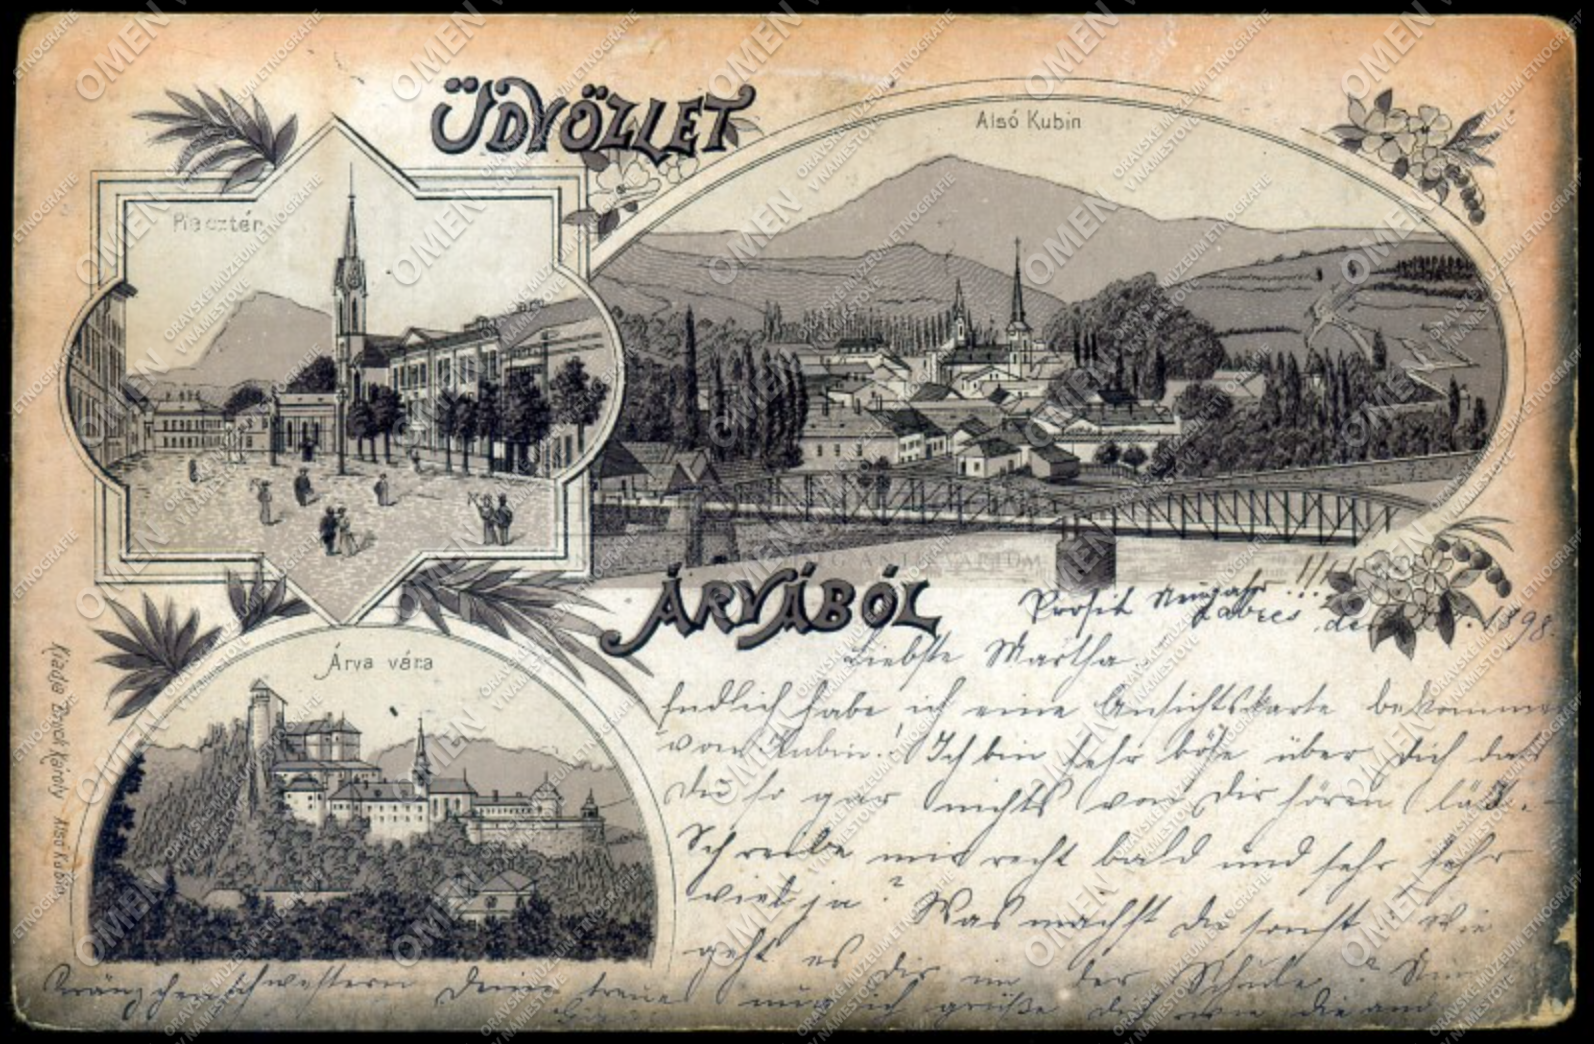 ÜDVÖZLET
ÁRVÁBÓL
Piacztér
Alsó Kubin
Árva vára
Kiadja Károly Alsó Kubin
Prosit Neujahr !!!
1898.
Liebste Martha
Endlich habe ich eine Ansichtskarte bekommen
von Kubin! Ich bin sehr böse über dich daß
du so gar nichts von dir hören läßt. -
Schreibe mir recht bald und sehr sehr
viel ja? Was machst du sonst? Wie
geht es dir in der Schule?
grüße dich wie die
Kränzchenschwestern Deine treue
OMEN
ORAVSKE MUZEUM ETNOGRAFIE
V NAMESTOVE